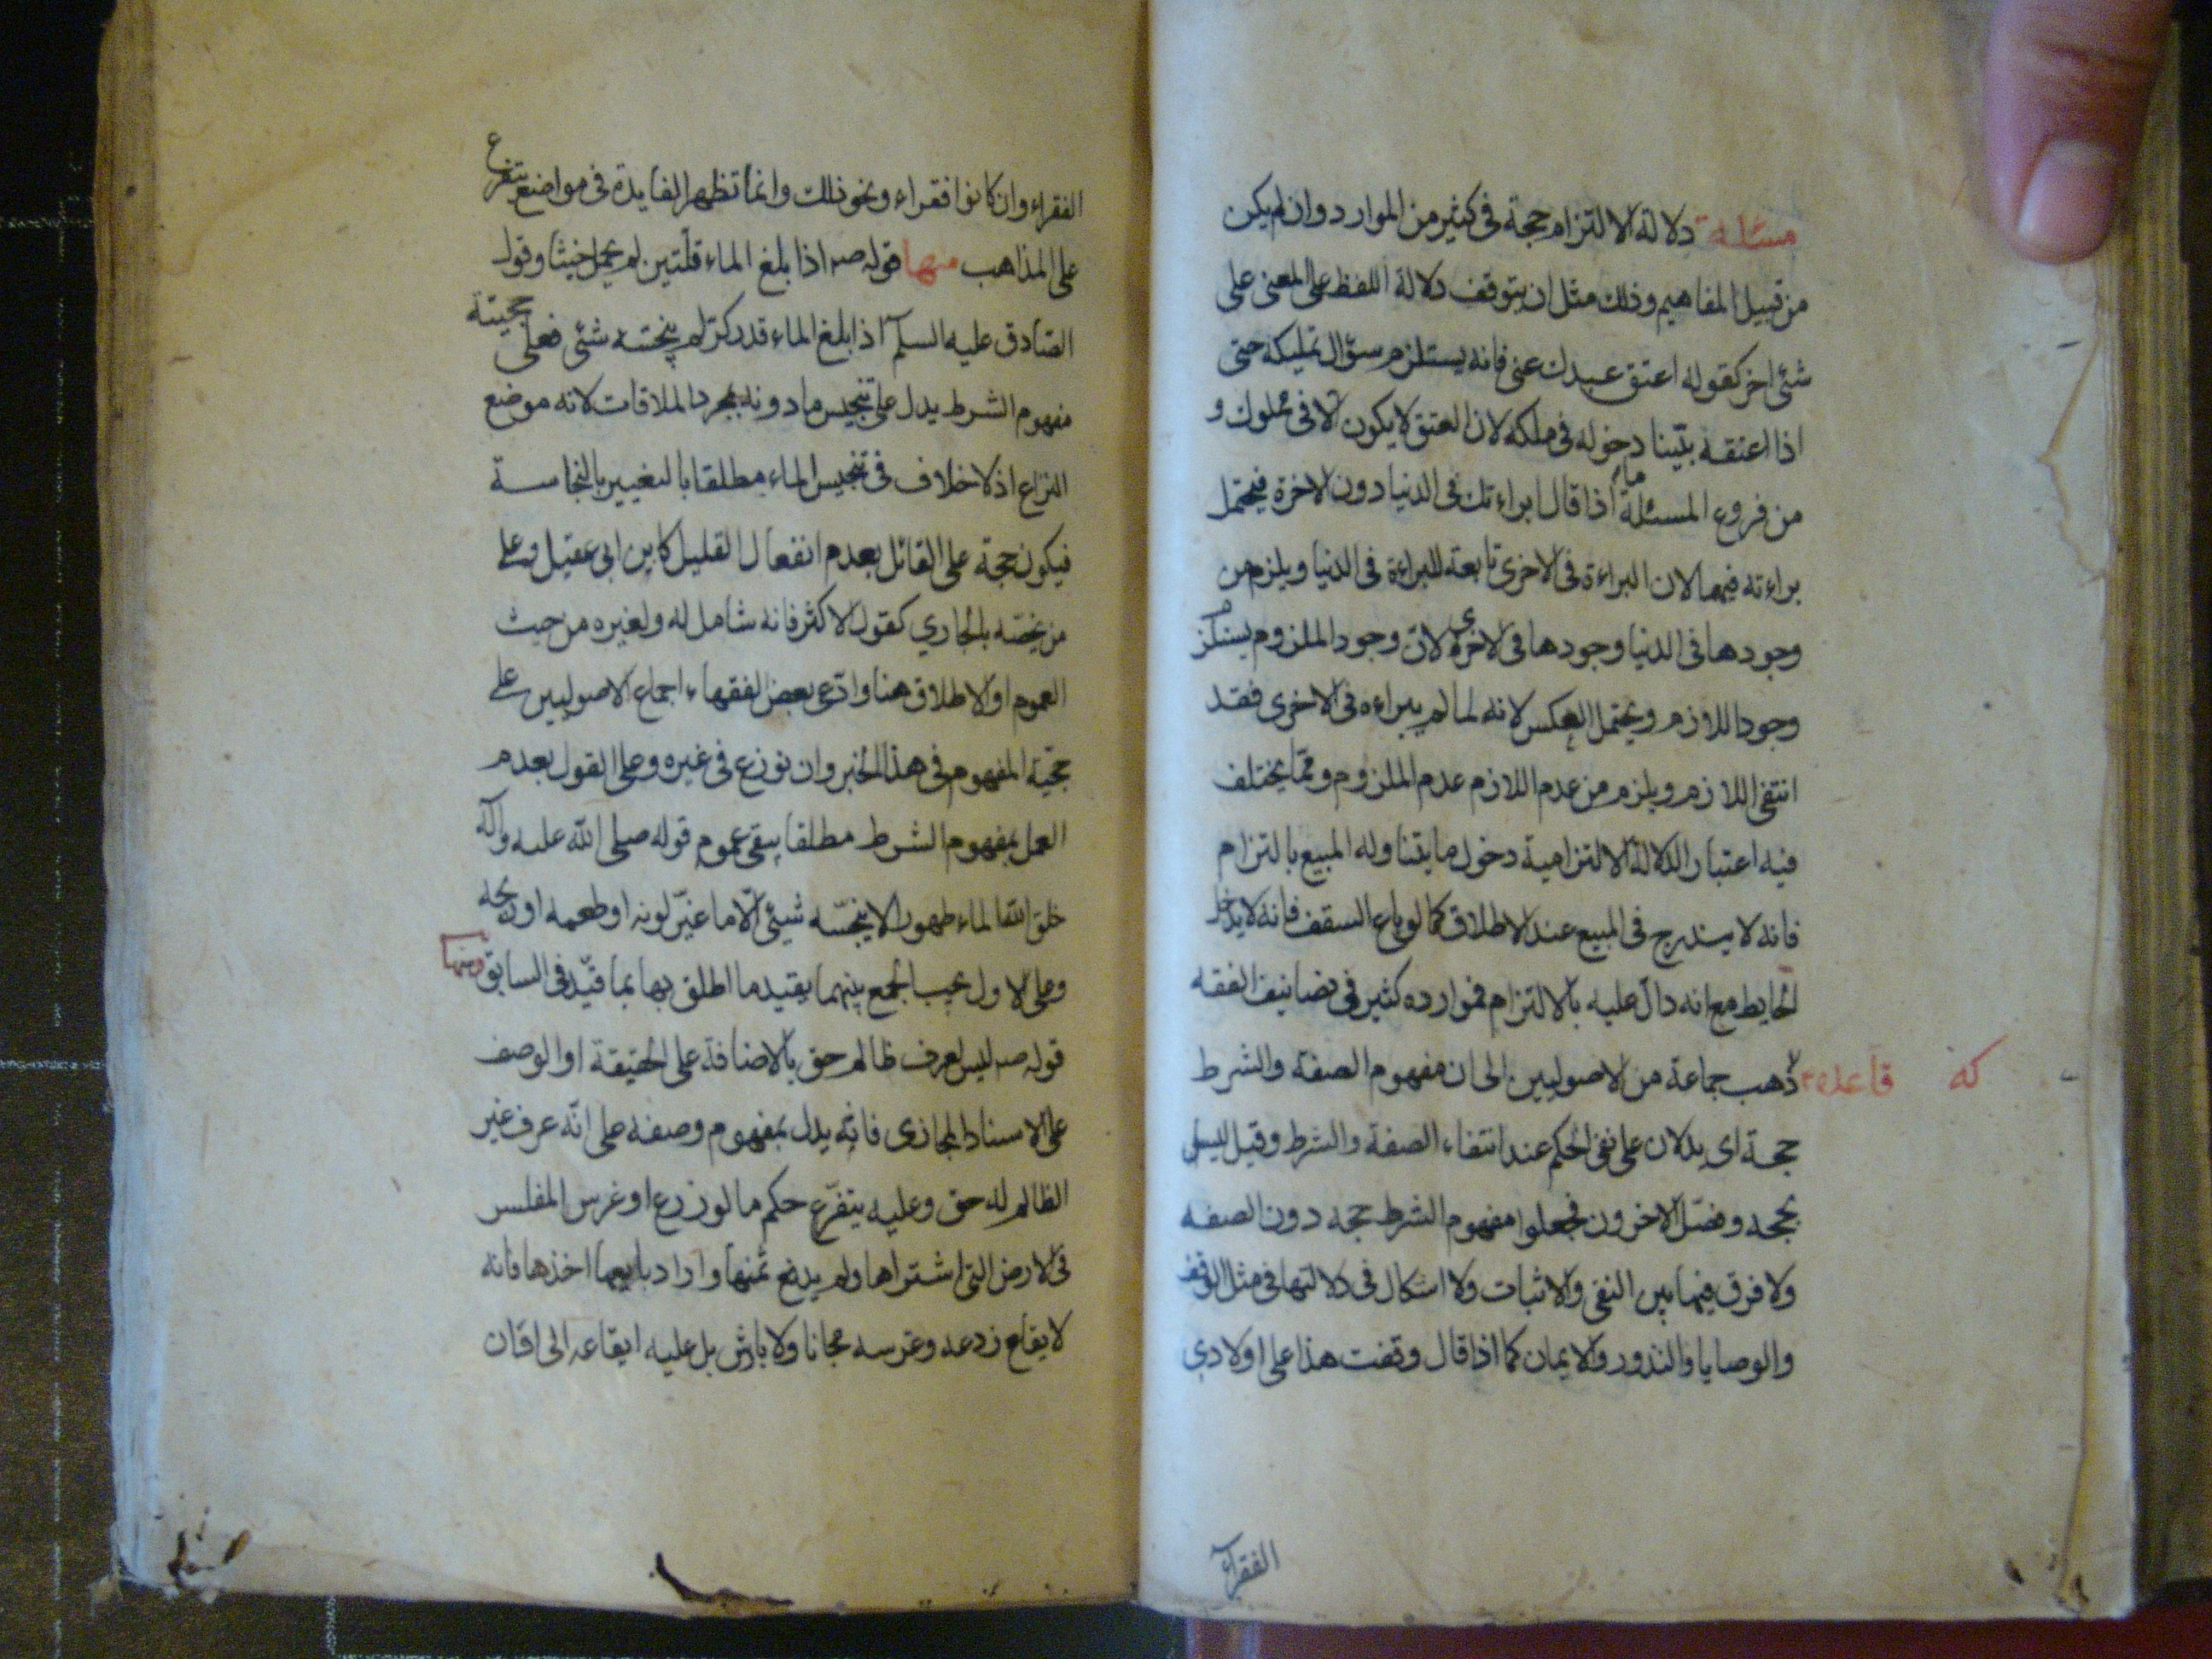 مسئلة دلالة الالتزام حجة في كثير من الموارد وان لم يكن
من قبيل المفاهيم وذلك مثل ان يتوقف دلالة اللفظ على المعنى على
شئ اخر كقوله اعتق عبدك عني فانه يستلزم سؤال تمليكه حتى
اذا اعتقه بيّنا دخوله في ملكه لان العتق لا يكون الا في مملوك و
من فروع المسئلة ما اذا قال ابراءتك في الدنيا دون الاخرة فيحتمل
براءته فيهما لان البراءة في الاخرى تابعة للبراءة في الدنيا ويلزم من
وجودها في الدنيا وجودها في الاخرى لان وجود الملزوم يستلزم
وجود اللازم ويحتمل العكس لانه لما لم يبراءه في الاخرى فقد
انتفى اللازم ويلزم من عدم اللازم عدم الملزوم وممّا يختلف
فيه اعتبار الدلالة الالتزامية دخول ما يتناوله المبيع بالتزام
فانه لا يندرج في المبيع عند الاطلاق كما لو باع السقف فانه لا يدخل
الحايط مع انه دال عليه بالالتزام فموارده كثير في تصانيف الفقه
كه قاعدة ذهب جماعة من الاصوليين الى ان مفهوم الصفة والشرط
حجة اي يدلان على نفي الحكم عند انتفاء الصفة والشرط وقيل ليس
بحجه وفصّل الاخرون فجعلوا مفهوم الشرط حجه دون الصفه
ولا فرق فيهما بين النفي والاثبات ولا اشكال في دلالتها في مثل الوقف
والوصايا والنذور والايمان كما اذا قال وقفت هذا على اولادي
الفقراء
الفقراء وان كانوا فقراء ونحو ذلك وانما تظهر الفايدة في مواضع يتفرع
على المذاهب منها قوله صم اذا بلغ الماء قلّتين لم يحمل خبثا وقول
الصّادق عليه السلم اذا بلغ الماء قدر كرّ لم ينجّسه شئى فعلى حجيته
مفهوم الشرط يدل على تنجيس ما دونه بمجرد الملاقات لانه موضع
النزاع اذ لا خلاف في تنجيس الماء مطلقا بالتغيير بالنجاسة
فيكون حجة على القائل بعدم انفعال القليل كابن ابي عقيل وعلى
من يخصّه بالجاري كقول الاكثر فانه شامل له ولغيره من حيث
العموم او الاطلاق هنا وادّعى بعض الفقهاء اجماع الاصوليين على
حجية المفهوم في هذا الخبر وان نوزع في غيره وعلى القول بعدم
العمل بمفهوم الشرط مطلقا يبقى عموم قوله صلى الله عليه وآله
خلق الله الماء طهورا لا ينجّسه شيئى الا ما غيّر لونه او طعمه او ريحه
وعلى الاول يجب الجمع بينهما بتقييد ما اطلق بها بما قيّد في السابق ومنها
قوله صم ليس لعرف ظالم حق بالاضافة على الحقيقة او الوصف
على الاسناد المجازى فانه يدل بمفهوم وصفه على انّه عرف غير
الظالم له حق وعليه يتفرّع حكم ما لو زرع او غرس المفلس
في الارض التي اشتراها ولم يدفع ثمنها واراد بايعها اخذها فانه
لا يقاع زرعه وغرسه مجانا ولا بارش بل عليه ابقاعه الى اقان